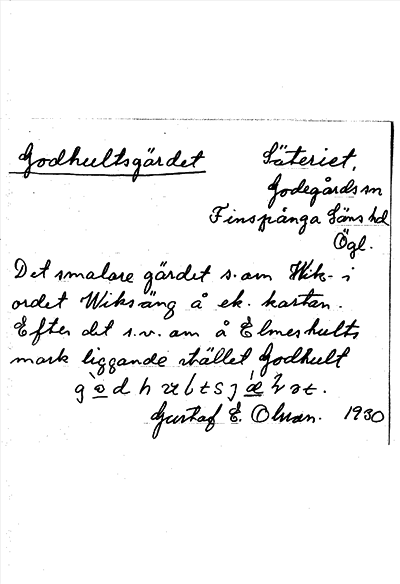 Godhultsgärdet
Säteriet,
Godegårds sn
Finspånga läns hd
Ögl.
Det smalare gärdet s. om Wik- i
ordet Wiksäng å ek. kartan.
Efter det s.v. om å Elmeshults
mark liggande stället Godhult
Gustaf E. Olsson. 1930